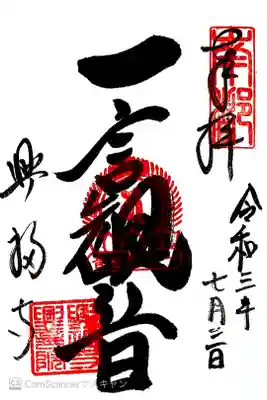 奉拝
令和三年
七月
一言觀音
興福寺
CS CamScannerでスキャン